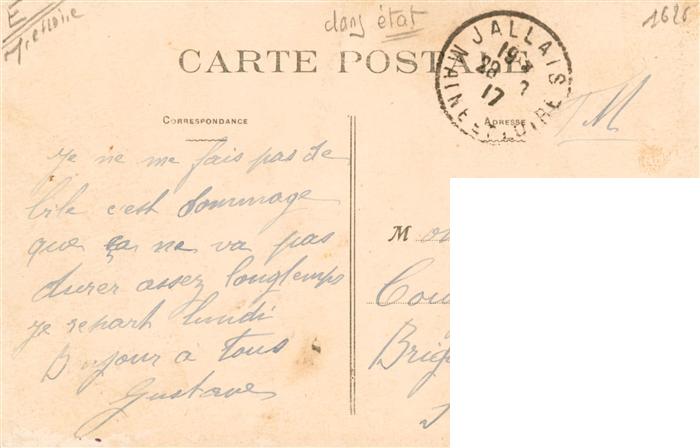 dans état
1626
CARTE POSTALE
JALLAIS
MAINE-ET-LOIRE
28 7
17
CORRESPONDANCE
ADRESSE
M
Je ne me fais pas de
bile c'est dommage
que ça ne va pas
durer assez longtemps
je repart lundi
Bonjour à tous
Gustave
M
Cou
Brig